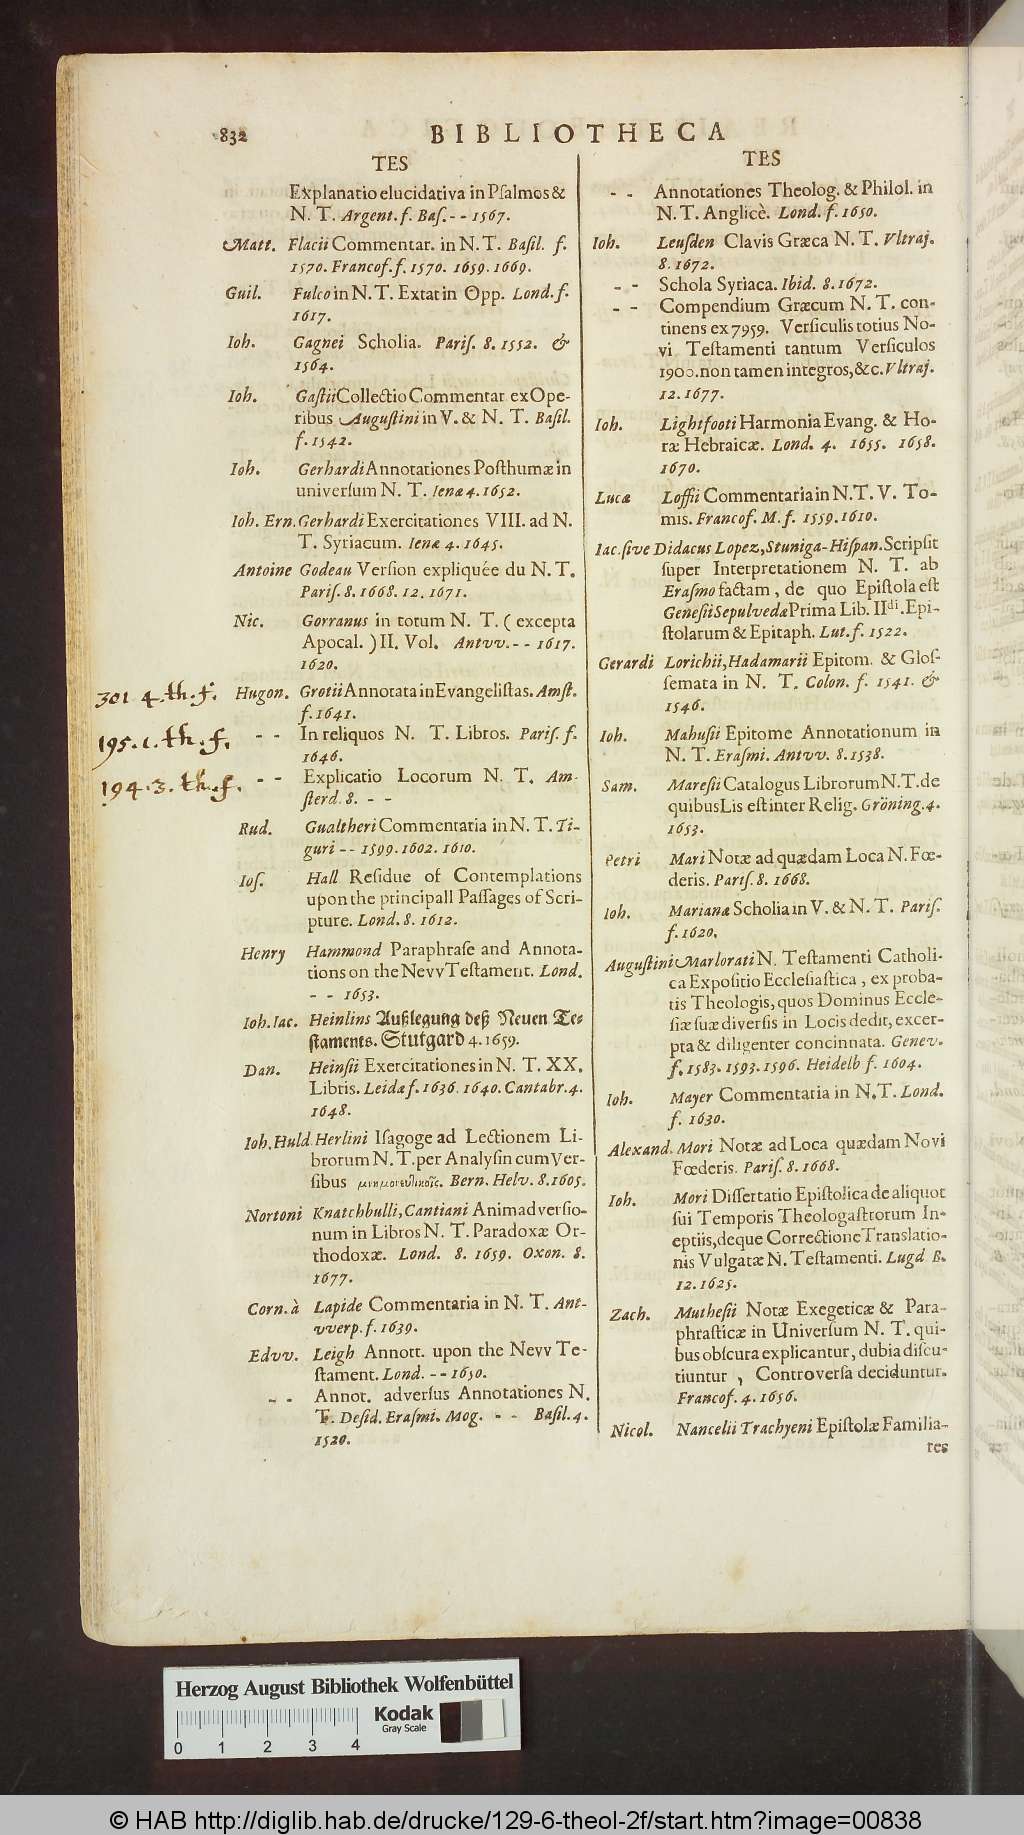 832
BIBLIOTHECA
TES
Explanatio elucidativa in Pſalmos &
N. T. Argent. f. Baſ. - - 1567.
Matt. Flacii Commentar. in N. T. Baſil. f.
1570. Francof. f. 1570. 1659. 1669.
Guil. Fulco in N. T. Extat in Opp. Lond. f.
1617.
Ioh. Gagnei Scholia. Pariſ. 8. 1552. &
1564.
Ioh. Gaſtii Collectio Commentar. ex Ope-
ribus Auguſtini in V. & N. T. Baſil.
f. 1542.
Ioh. Gerhardi Annotationes Poſthumæ in
univerſum N. T. Ienæ 4. 1652.
Ioh. Ern. Gerhardi Exercitationes VIII. ad N.
T. Syriacum. Ienæ 4. 1645.
Antoine Godeau Verſion expliquée du N. T.
Pariſ. 8. 1668. 12. 1671.
Nic. Gorranus in totum N. T. ( excepta
Apocal. ) II. Vol. Antvv. - - 1617.
1620.
301. 4. th. f. Hugon. Grotii Annotata in Evangeliſtas. Amſt.
f. 1641.
195. 1. th. f. - - In reliquos N. T. Libros. Pariſ. f.
1646.
194. 3. th. f. - - Explicatio Locorum N. T. Am-
ſterd. 8. - -
Rud. Gualtheri Commentaria in N. T. Ti-
guri - - 1599. 1602. 1610.
Ioſ. Hall Reſidue of Contemplations
upon the principall Paſſages of Scri-
pture. Lond. 8. 1612.
Henry Hammond Paraphraſe and Annota-
tions on the Nevv Teſtament. Lond.
- - 1653.
Ioh. Iac. Heinlins Außlegung deß Neuen Te-
ſtaments. Stutgard 4. 1659.
Dan. Heinſii Exercitationes in N. T. XX.
Libris. Leidæ f. 1636. 1640. Cantabr. 4.
1648.
Ioh. Huld. Herlini Iſagoge ad Lectionem Li-
brorum N. T. per Analyſin cum Ver-
ſibus μνημονευτικοῖς. Bern. Helv. 8. 1605.
Nortoni Knatchbulli, Cantiani Animadverſio-
num in Libros N. T. Paradoxæ Or-
thodoxæ. Lond. 8. 1659. Oxon. 8.
1677.
Corn. à Lapide Commentaria in N. T. Ant-
vverp. f. 1639.
Edvv. Leigh Annott. upon the Nevv Te-
ſtament. Lond. - - 1650.
- - Annot. adverſus Annotationes N.
T. Deſid. Eraſmi. Mog. - - Baſil. 4.
1520.
TES
- - Annotationes Theolog. & Philol. in
N. T. Anglicè. Lond. f. 1650.
Ioh. Leuſden Clavis Græca N. T. Vltraj.
8. 1672.
- - Schola Syriaca. Ibid. 8. 1672.
- - Compendium Græcum N. T. con-
tinens ex 7959. Verſiculis totius No-
vi Teſtamenti tantum Verſiculos
1900. non tamen integros, &c. Vltraj.
12. 1677.
Ioh. Lightfooti Harmonia Evang. & Ho-
ræ Hebraicæ. Lond. 4. 1655. 1658.
1670.
Lucæ Loſſii Commentaria in N. T. V. To-
mis. Francof. M. f. 1559. 1610.
Iac. ſive Didacus Lopez, Stuniga-Hiſpan. Scripſit
ſuper Interpretationem N. T. ab
Eraſmo factam, de quo Epiſtola eſt
Geneſii Sepulvedæ Prima Lib. IIdi. Epi-
ſtolarum & Epitaph. Lut. f. 1522.
Gerardi Lorichii, Hadamarii Epitom. & Gloſ-
ſemata in N. T. Colon. f. 1541. &
1546.
Ioh. Mahuſii Epitome Annotationum in
N. T. Eraſmi. Antvv. 8. 1538.
Sam. Mareſii Catalogus Librorum N. T. de
quibus Lis eſt inter Relig. Gröning. 4.
1653.
Petri Mari Notæ ad quædam Loca N. Fœ-
deris. Pariſ. 8. 1668.
Ioh. Marianæ Scholia in V. & N. T. Pariſ.
f. 1620.
Auguſtini Marlorati N. Teſtamenti Catholi-
ca Expoſitio Eccleſiaſtica, ex proba-
tis Theologis, quos Dominus Eccle-
ſiæ ſuæ diverſis in Locis dedit, excer-
pta & diligenter concinnata. Genev.
f. 1583. 1593. 1596. Heidelb f. 1604.
Ioh. Mayer Commentaria in N. T. Lond.
f. 1630.
Alexand. Mori Notæ ad Loca quædam Novi
Fœderis. Pariſ. 8. 1668.
Ioh. Mori Diſſertatio Epiſtolica de aliquot
ſui Temporis Theologaſtrorum In-
eptiis, deque Correctione Translatio-
nis Vulgatæ N. Teſtamenti. Lugd B.
12. 1625.
Zach. Mutheſii Notæ Exegeticæ & Para-
phraſticæ in Univerſum N. T. qui-
bus obſcura explicantur, dubia diſcu-
tiuntur, Controverſa deciduntur.
Francof. 4. 1656.
Nicol. Nancelii Trachyeni Epiſtolæ Familia-
res
Herzog August Bibliothek Wolfenbüttel
Kodak
Gray Scale
0 1 2 3 4
© HAB http://diglib.hab.de/drucke/129-6-theol-2f/start.htm?image=00838